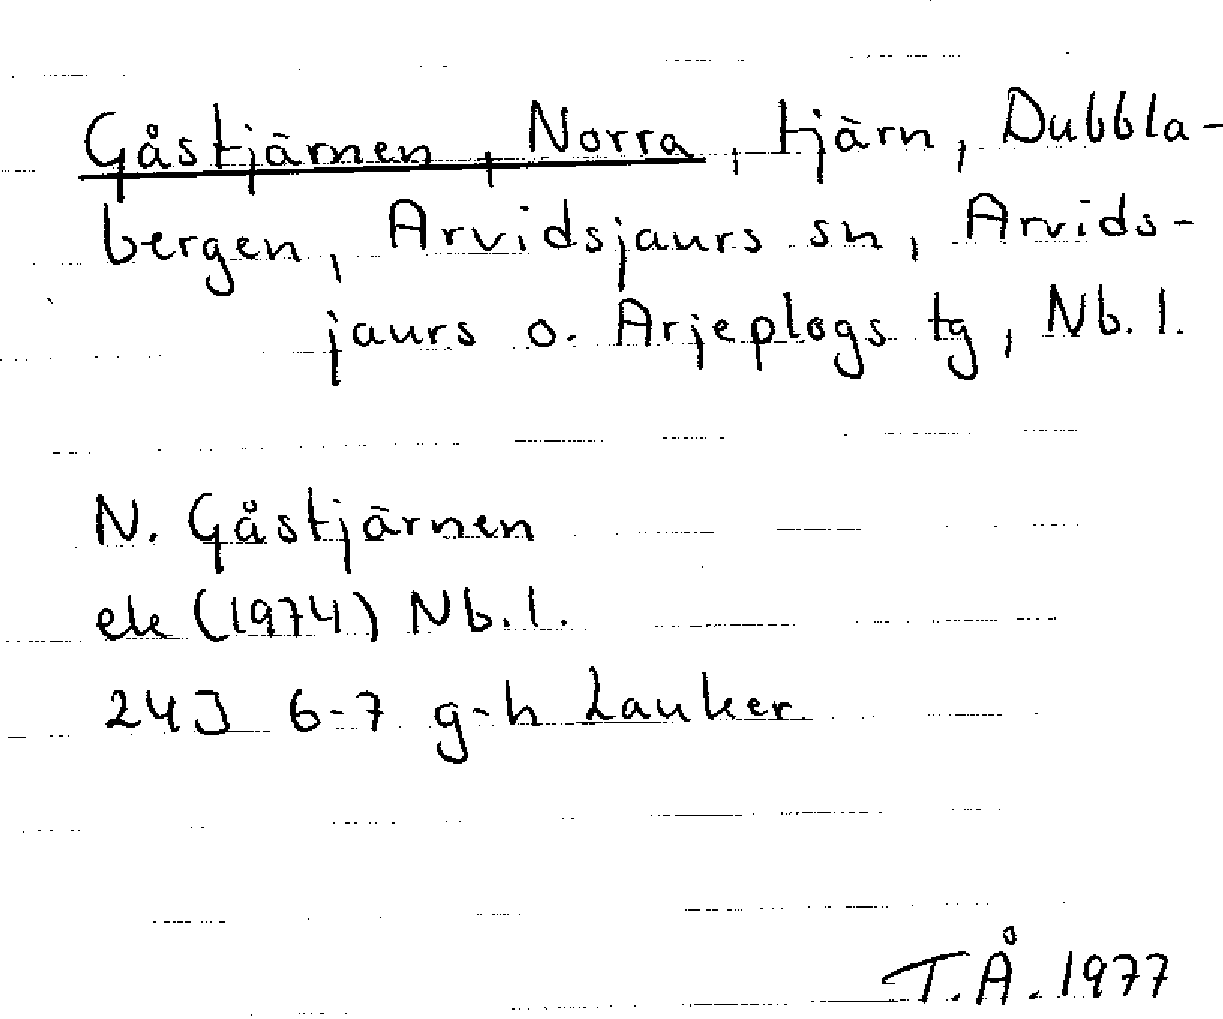 Gåstjärnen, Norra, tjärn, Dubbla-
bergen, Arvidsjaurs sn, Arvids-
jaurs o. Arjeplogs tg, Nb. l.
N. Gåstjärnen
ek (1974) Nb. l.
24J 6-7 g-h Lauker
T.Å. 1977